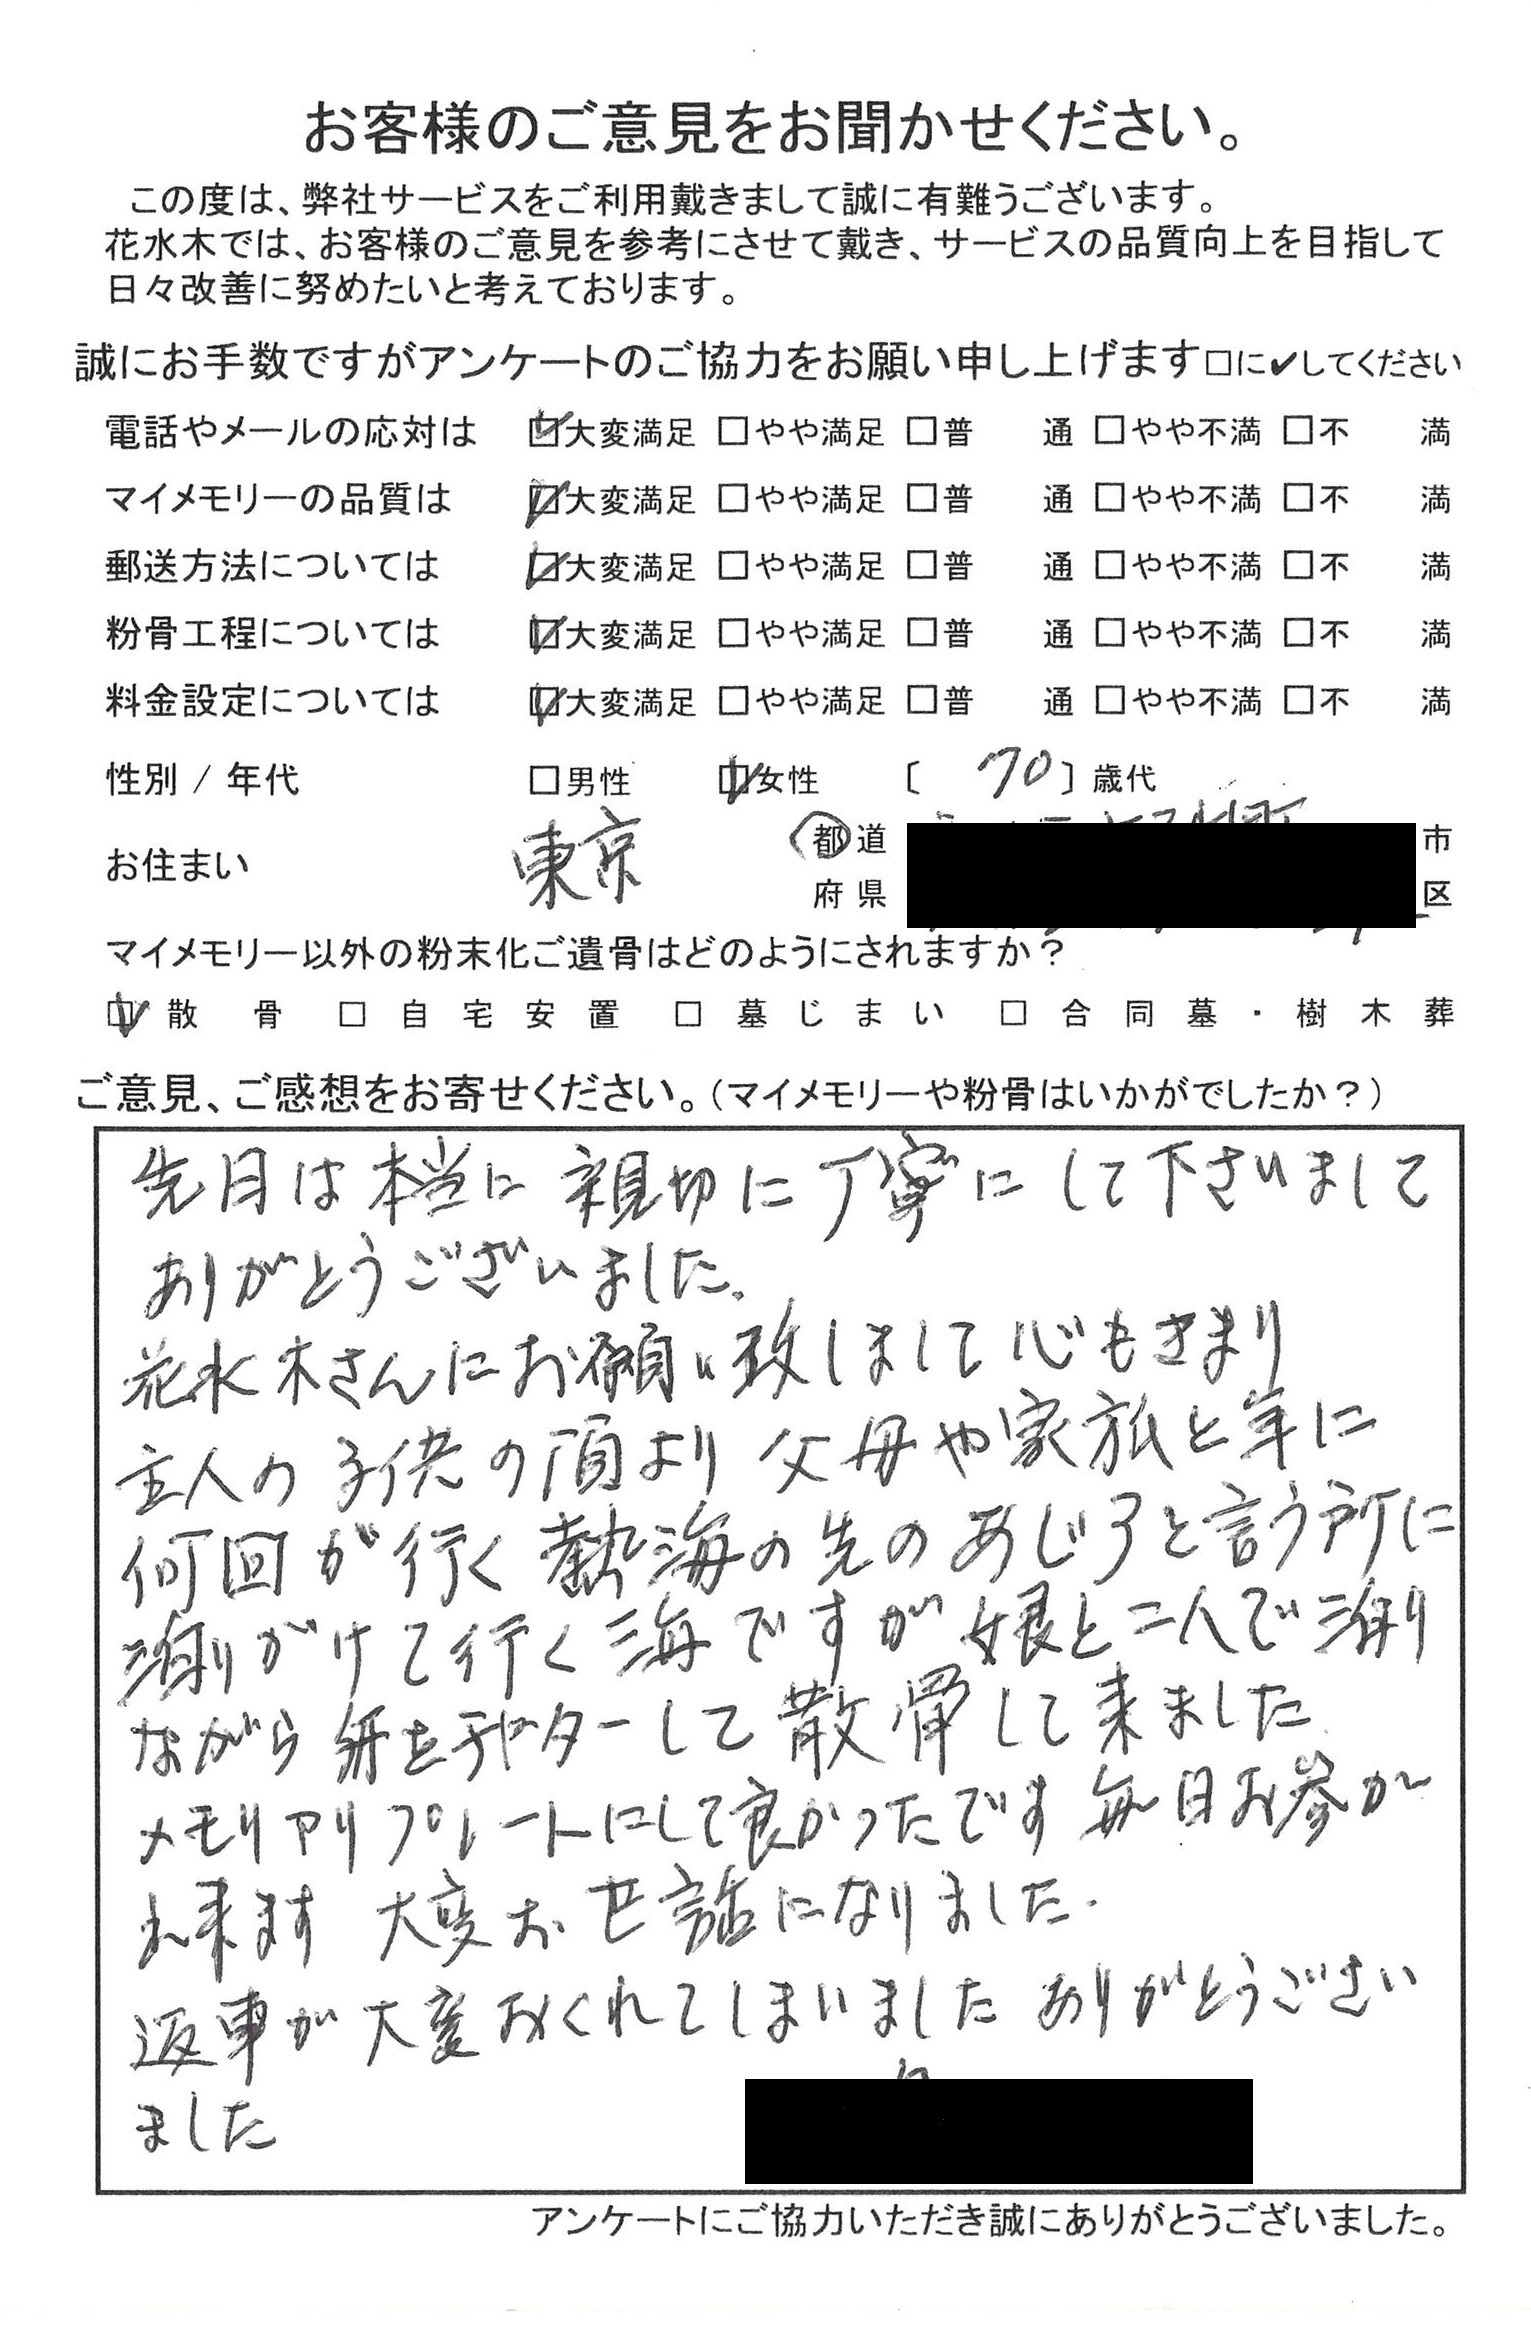 お客様のご意見をお聞かせください。
この度は、弊社サービスをご利用戴きまして誠に有難うございます。
花水木では、お客様のご意見を参考にさせて戴き、サービスの品質向上を目指して
日々改善に努めたいと考えております。
誠にお手数ですがアンケートのご協力をお願い申し上げます□に✔してください
電話やメールの応対は ☑大変満足 □やや満足 □普通 □やや不満 □不満
マイメモリーの品質は ☑大変満足 □やや満足 □普通 □やや不満 □不満
郵送方法については ☑大変満足 □やや満足 □普通 □やや不満 □不満
粉骨工程については ☑大変満足 □やや満足 □普通 □やや不満 □不満
料金設定については ☑大変満足 □やや満足 □普通 □やや不満 □不満
性別 / 年代 □男性 ☑女性 〔 70 〕歳代
お住まい 東京 都道府県 市区
マイメモリー以外の粉末化ご遺骨はどのようにされますか？
☑散骨 □自宅安置 □墓じまい □合同墓・樹木葬
ご意見、ご感想をお寄せください。（マイメモリーや粉骨はいかがでしたか？）
先月は本当に親切に丁寧にして下さいまして
ありがとうございました。
花水木さんにお願い致しまして心もきまり
主人の子供の頃より父母や家族と年に
何回が行く熱海の先のあじろと言う所に
釣りがけて行く海ですが娘と二人で釣り
ながら舟をチャターして散骨して来ました
メモリアリプレートにして良かったです毎日お参が
出来ます 大変お世話になりました.
返事が大変おくれてしまいました ありがとうござい
ました
アンケートにご協力いただき誠にありがとうございました。